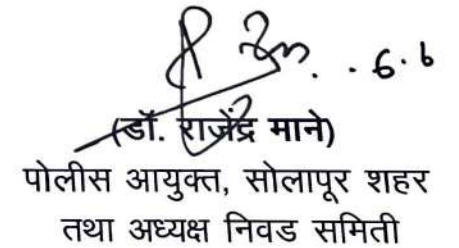 6.6
(डॉ. राजेंद्र माने)
पोलीस आयुक्त, सोलापूर शहर
तथा अध्यक्ष निवड समिती